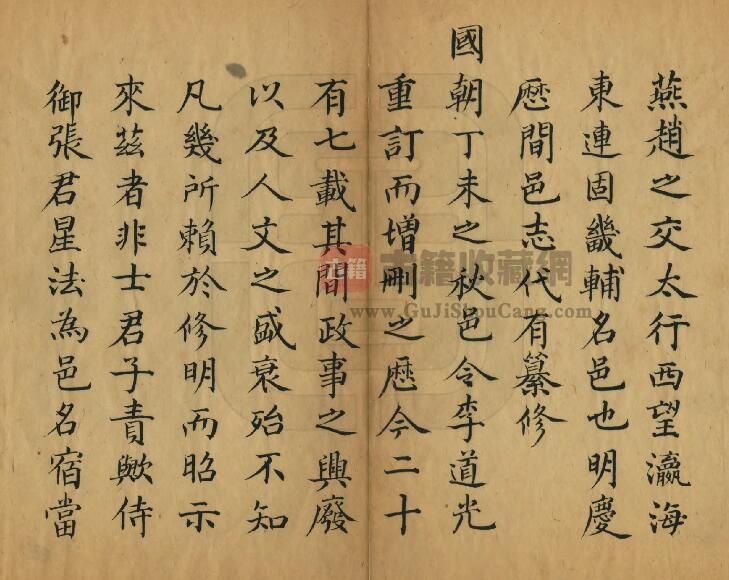 燕趙之交太行西望瀛海
東連固畿輔名邑也明慶
歷間邑志代有纂修
國朝丁未之秋邑令李道光
重訂而增刪之歷今二十
有七載其間政事之興廢
以及人文之盛衰殆不知
凡幾所賴於修明而昭示
來茲者非士君子責歟侍
御張君星法為邑名宿當
古籍
古籍收藏網
www.GuJiShouCang.com